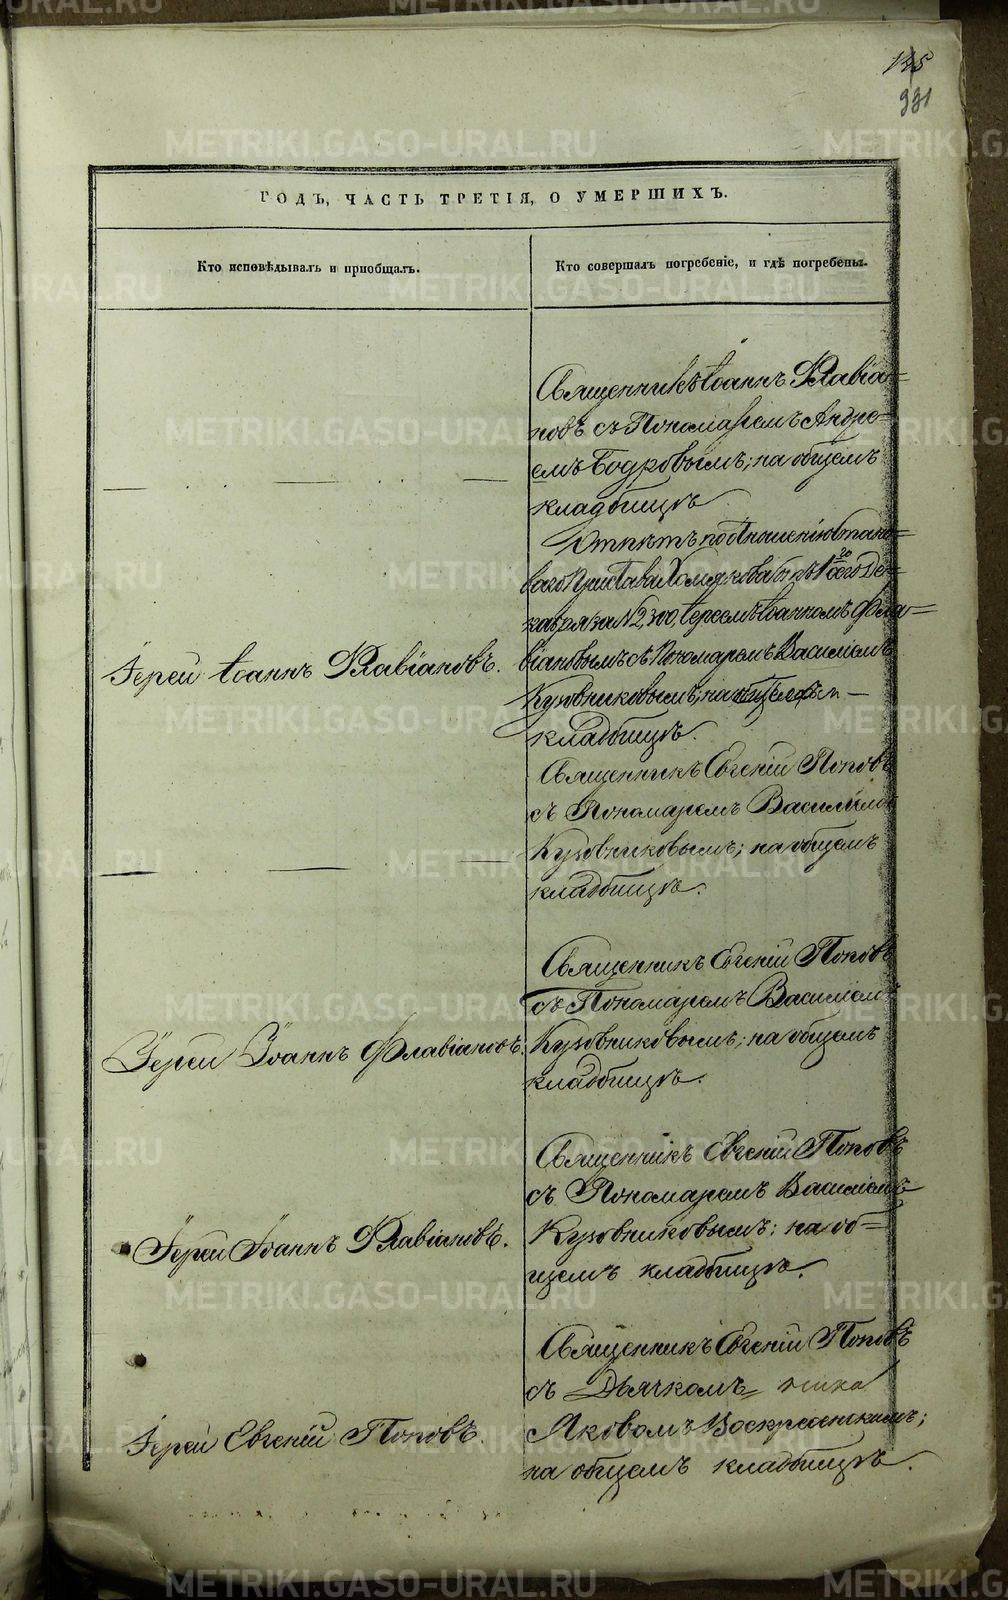 145
931
ГОДЪ, ЧАСТЬ ТРЕТІЯ, О УМЕРШИХЪ.
Кто исповѣдывалъ и пріобщалъ.
Кто совершалъ погребеніе, и гдѣ погребены.
Священникъ Іоаннъ Флавіа=
новъ съ Пономаремъ Андре=
емъ Бодровымъ; на общемъ
кладбищѣ
Отпѣтъ по отношенію Стано=
ваго Пристава Хомякова отъ
кабря за № 2,300, Іереемъ Іоанномъ Фла=
Іерей Іоаннъ Флавіановъ.
віановымъ съ Пономаремъ Василіемъ
Кузовниковымъ, на
кладбищѣ.
Священникъ Евгеній Поповъ
съ Пономаремъ Василіемъ
Кузовниковымъ; на общемъ
кладбищѣ.
Священникъ Евгеній Поповъ
съ Пономаремъ Василіемъ
Іерей Іоаннъ Флавіановъ.
Кузовниковымъ; на общемъ
кладбищѣ.
Священникъ Евгеній Поповъ
съ Пономаремъ Василіемъ
Іерей Іоаннъ Флавіановъ.
Кузовниковымъ; на об=
щемъ кладбищѣ.
Священникъ Евгеній Поповъ
съ Дьячкомъ
Іерей Евгеній Поповъ.
Яковомъ Воскресенскимъ;
на общемъ кладбищѣ.
METRIKI.GASO-URAL.RU